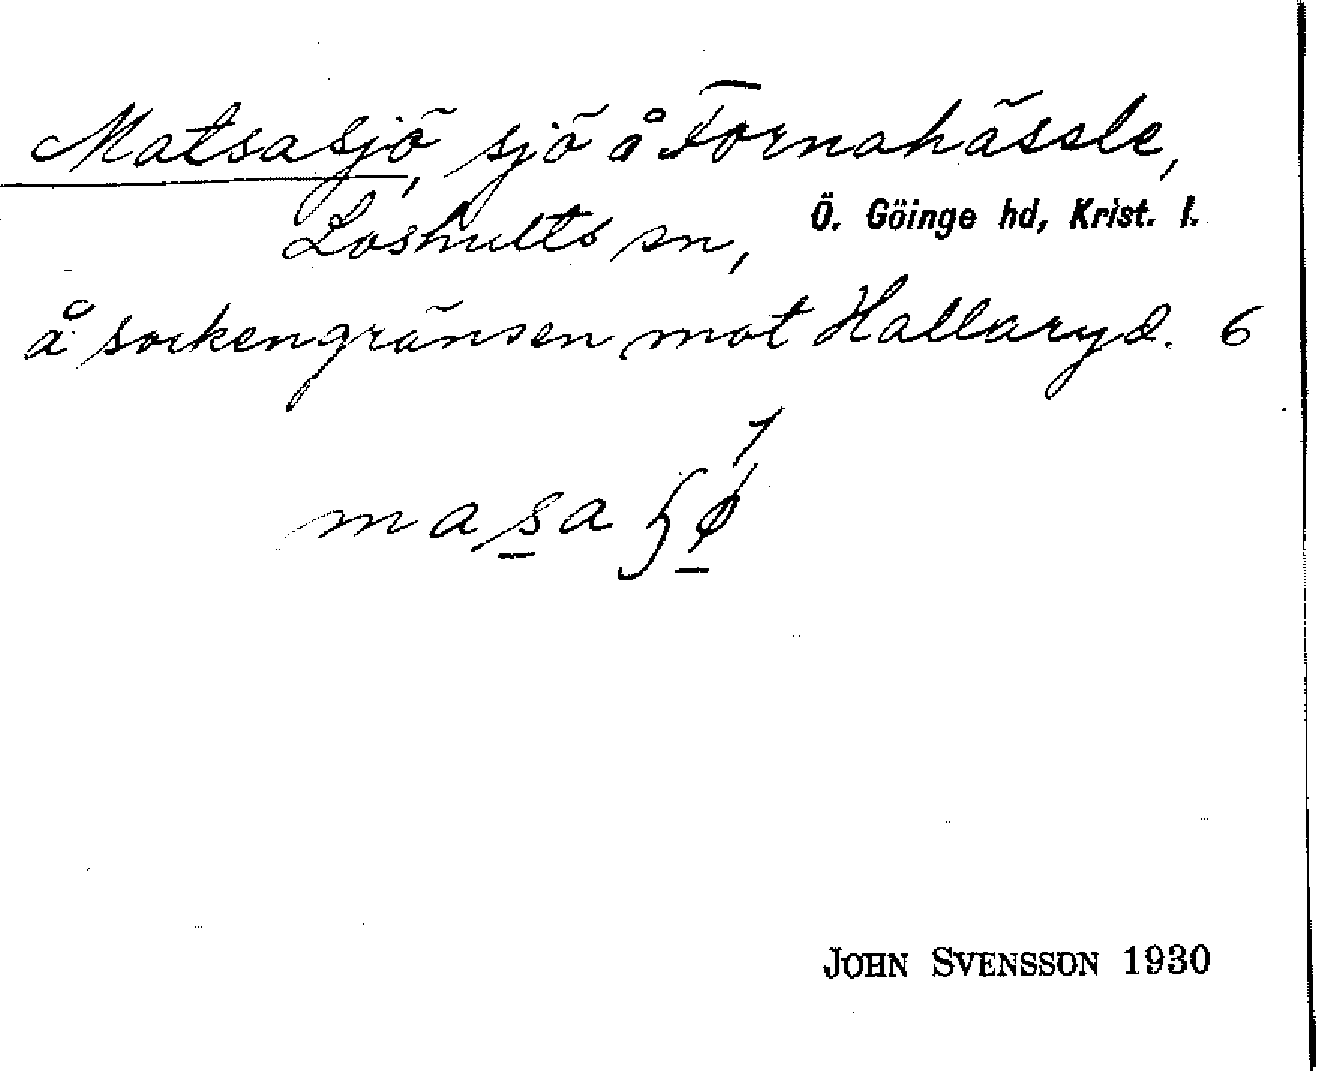 Matsasjö, sjö å Tornahässle,
Loshults sn, Ö. Göinge hd, Krist. l.
å sockengränsen mot Hallaryd. 6
masa
JOHN SVENSSON 1930